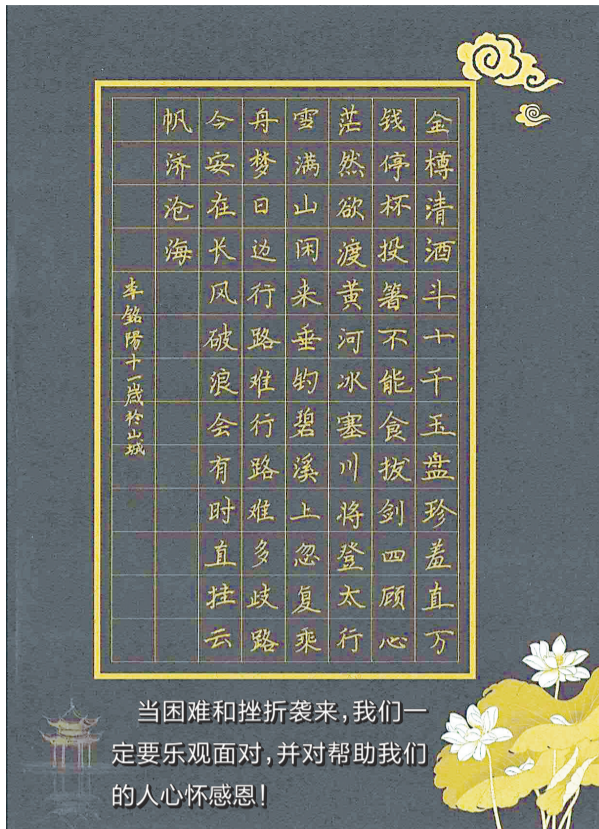 金樽清酒斗十千玉盘珍羞直万
钱停杯投箸不能食拔剑四顾心
茫然欲渡黄河冰塞川将登太行
雪满山闲来垂钓碧溪上忽复乘
舟梦日边行路难行路难多歧路
今安在长风破浪会有时直挂云
帆济沧海
李铭阳十一岁于山城
当困难和挫折袭来，我们一
定要乐观面对，并对帮助我们
的人心怀感恩！